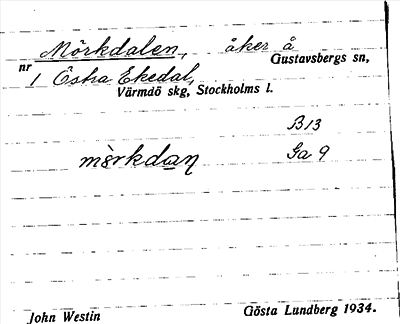 Mörkdalen, åker å
Gustavsbergs sn,
nr 1 Östra Ekedal,
Värmdö skg, Stockholms l.
B13
Ga 9
John Westin
Gösta Lundberg 1934.